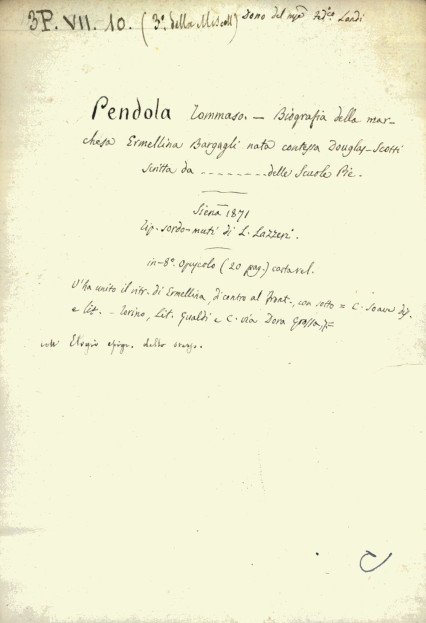 3P. VII. 10. (3º. della Miscell) Dono del Landi
Pendola Tommaso. — Biografia della mar-
chesa Ermellina Bargagli nata contessa Douglas-Scotti
scritta da - - - - - - - - delle Scuole Pie.
Siena 1871
Tip. sordo-muti di L. Lazzeri.
in-8º. Opuscolo (20 pag.) cartavel.
V'ha unito il ritr. di Ermellina, di contro al front., con sotto = C. Soave dis.
e lit. - Torino, Lit. Gualdi e C. via Dora Grossa, 7=
Elogio epigr. dello stesso.